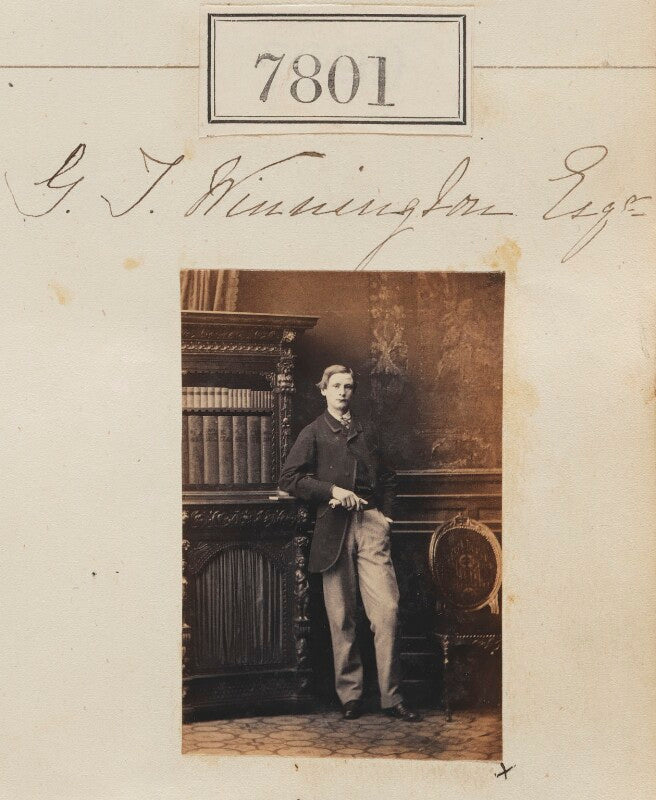 7801
G. T. Winnington Esqre